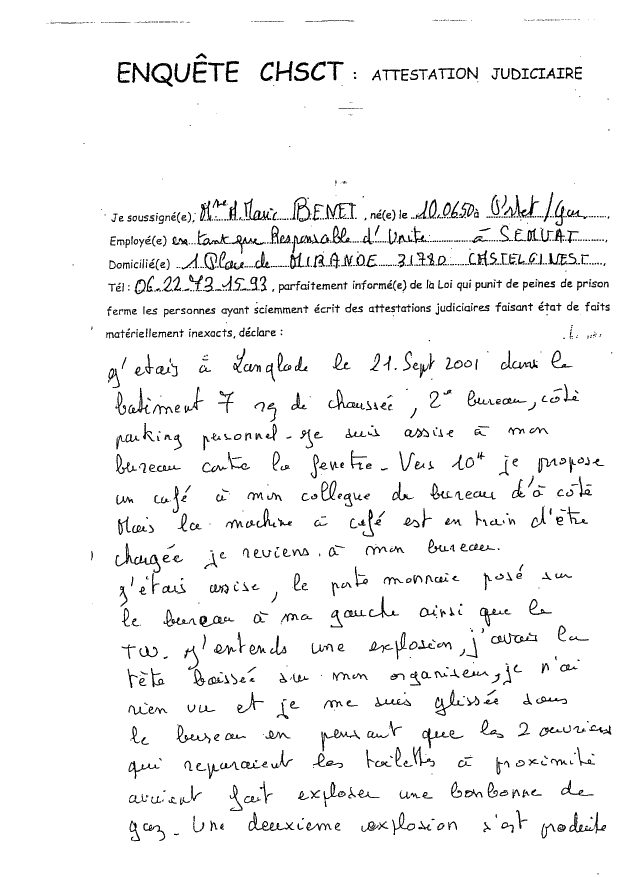 ENQUÊTE CHSCT : ATTESTATION JUDICIAIRE
Je soussigné(e), Mme A. Marie BENET, né(e) le 10.06.50 à Portet/Gar
Employé(e) en tant que Responsable d'Unité à SEMVAT
Domicilié(e) 1 Place de MIRANDE 31780 CASTELGINEST
Tél : 06.22.73.15.93, parfaitement informé(e) de la Loi qui punit de peines de prison
ferme les personnes ayant sciemment écrit des attestations judiciaires faisant état de faits
matériellement inexacts, déclare :
J'étais à Langlade le 21. Sept 2001 dans le
batiment 7 rg de chaussée, 2e bureau, côté
parking personnel - Je suis assise à mon
bureau contre la fenetre - Vers 10H je propose
un café à mon collegue de bureau d'à côté
Mais la machine à café est en train d'être
chargée je reviens à mon bureau.
J'étais assise, le porte monnaie posé sur
le bureau à ma gauche ainsi que le
TW. J'entends une explosion, j'avais la
tête baissée sur mon organiseur, je n'ai
rien vu et je me suis glissée sous
le bureau en pensant que les 2 ouvriers
qui reparaient les toilettes à proximité
avaient fait exploser une bonbonne de
gaz - Une deuxieme explosion s'est produite